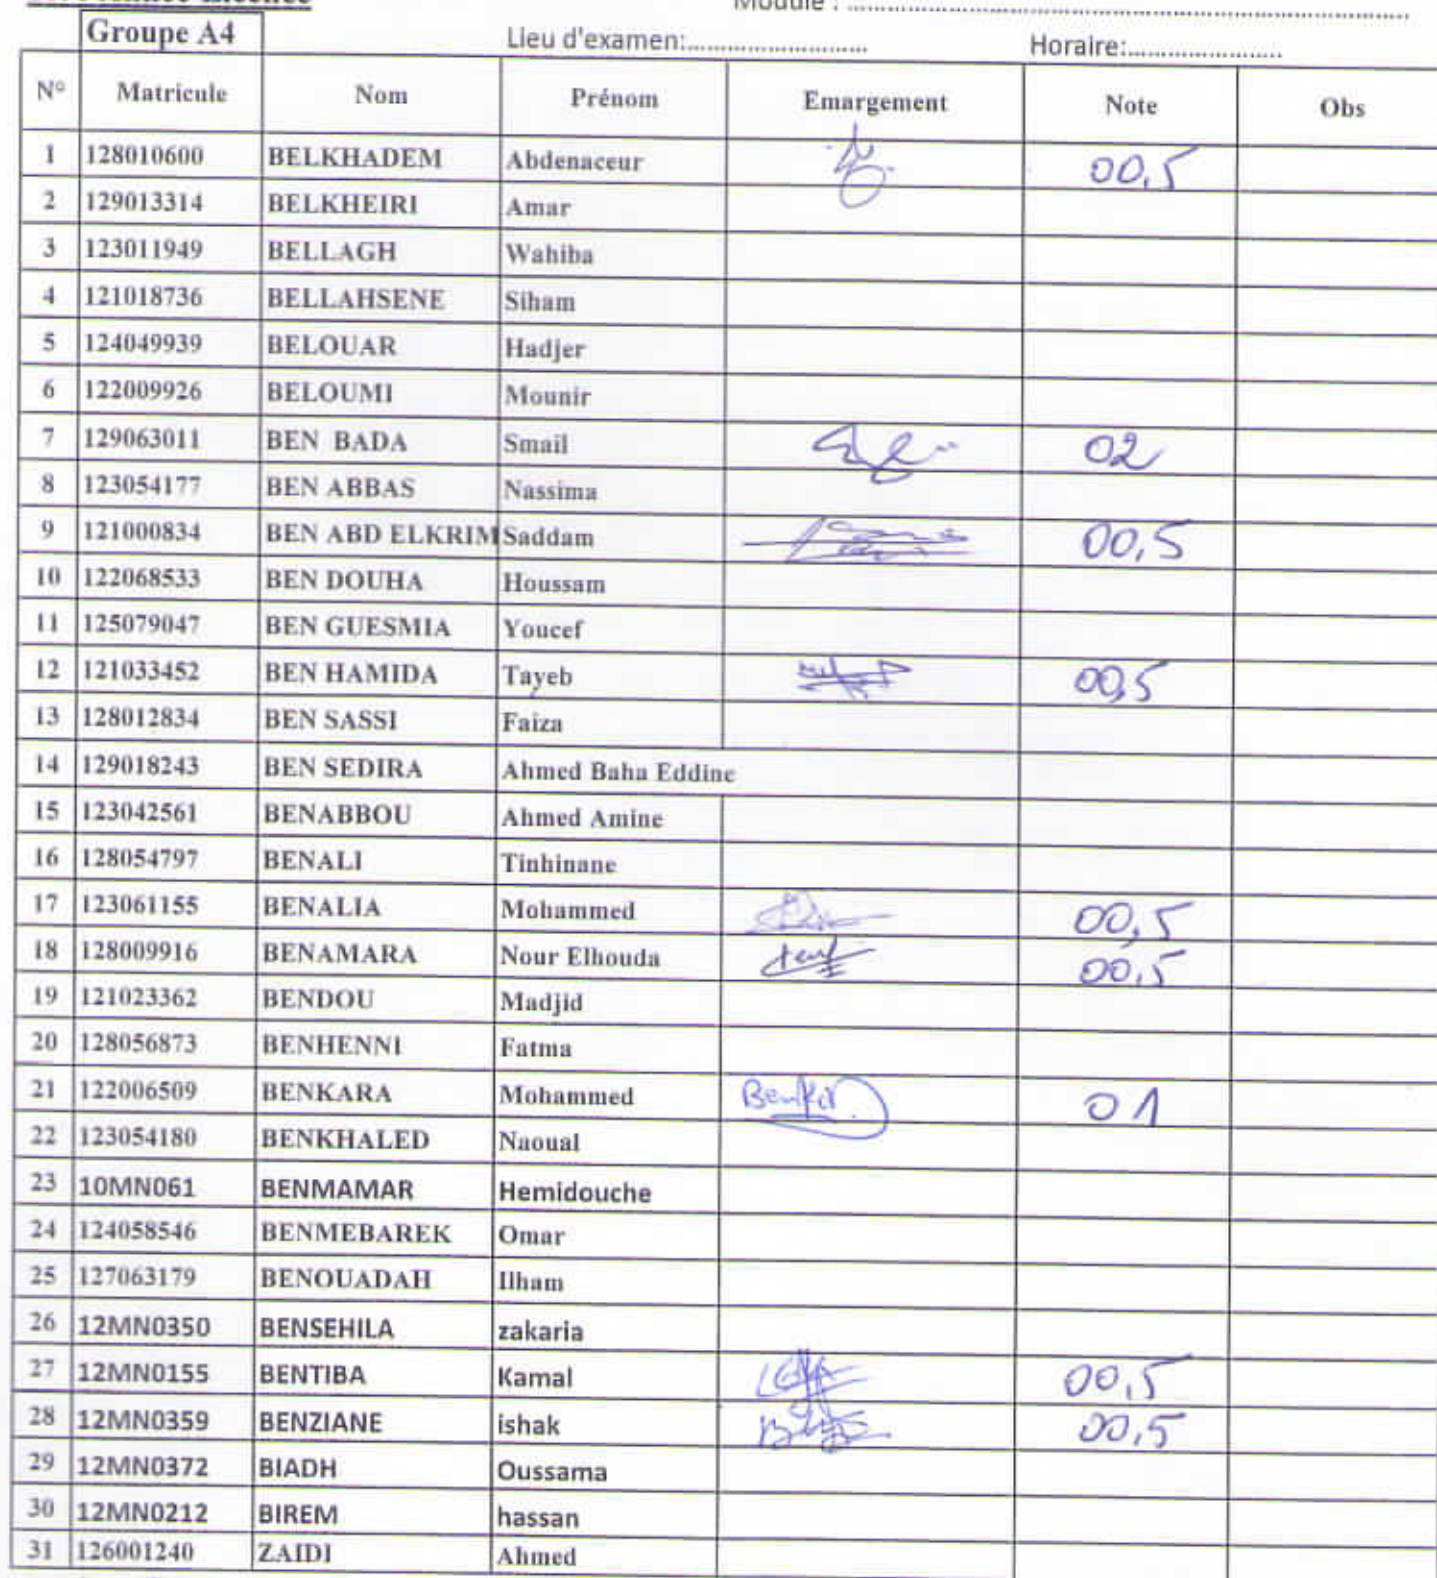 Module : ........................................................................
Groupe A4
Lieu d'examen:........................... Horaire:.......................
N° Matricule Nom Prénom Emargement Note Obs
1 128010600 BELKHADEM Abdenaceur 00,5
2 129013314 BELKHEIRI Amar
3 123011949 BELLAGH Wahiba
4 121018736 BELLAHSENE Siham
5 124049939 BELOUAR Hadjer
6 122009926 BELOUMI Mounir
7 129063011 BEN BADA Smail 02
8 123054177 BEN ABBAS Nassima
9 121000834 BEN ABD ELKRIM Saddam 00,5
10 122068533 BEN DOUHA Houssam
11 125079047 BEN GUESMIA Youcef
12 121033452 BEN HAMIDA Tayeb 00,5
13 128012834 BEN SASSI Faiza
14 129018243 BEN SEDIRA Ahmed Baha Eddine
15 123042561 BENABBOU Ahmed Amine
16 128054797 BENALI Tinhinane
17 123061155 BENALIA Mohammed 00,5
18 128009916 BENAMARA Nour Elhouda 00,5
19 121023362 BENDOU Madjid
20 128056873 BENHENNI Fatma
21 122006509 BENKARA Mohammed 01
22 123054180 BENKHALED Naoual
23 10MN061 BENMAMAR Hemidouche
24 124058546 BENMEBAREK Omar
25 127063179 BENOUADAH Ilham
26 12MN0350 BENSEHILA zakaria
27 12MN0155 BENTIBA Kamal 00,5
28 12MN0359 BENZIANE ishak 00,5
29 12MN0372 BIADH Oussama
30 12MN0212 BIREM hassan
31 126001240 ZAIDI Ahmed